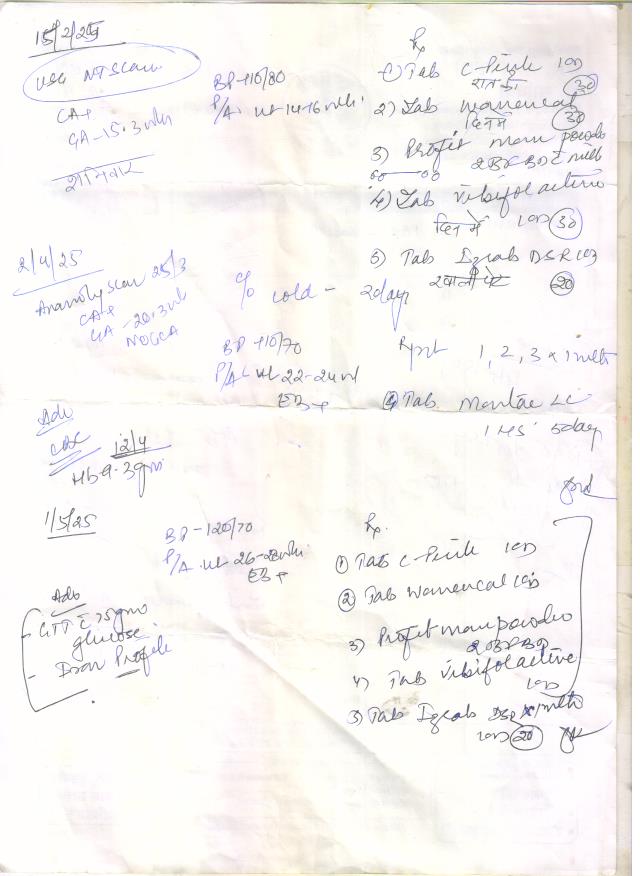 15/2/25
USG NT Scan
CA+
GA - 15.3 wk
शनिवार
BP - 110/80
P/A. ut 14-16 wk.
Rx
1) Tab C-Pink 1OD
रात को 30
2) Tab Womencal
दिन में 30
3) Profit mom powder
2BSP BD c milk
4) Tab Vibifol active
दिन में 1OD 30
5) Tab Egrab DSR 1OD
खाली पेट 20
2/4/25
Anamoly Scan 25/3
CA+
GA - 20.3 wk
NOGCA
c/o cold - 2day
BP - 110/70
P/A - ut 22-24 wk
Rpt 1, 2, 3 x 1 mth
4) Tab Montac LC
1 HS 5day
Adv
CBC 12/4
Hb 9.3gm
1/5/25
BP - 120/70
P/A. ut - 26-28 wk
Rx
1) Tab C-Pink 1OD
2) Tab Womencal 1OD
3) Profit mom powder
2BSP BD
4) Tab Vibifol active
1OD
5) Tab Egrab DSR x 1 mth
1OD 20
Adv
- GTT c 75gm
glucose
- Iron Profile